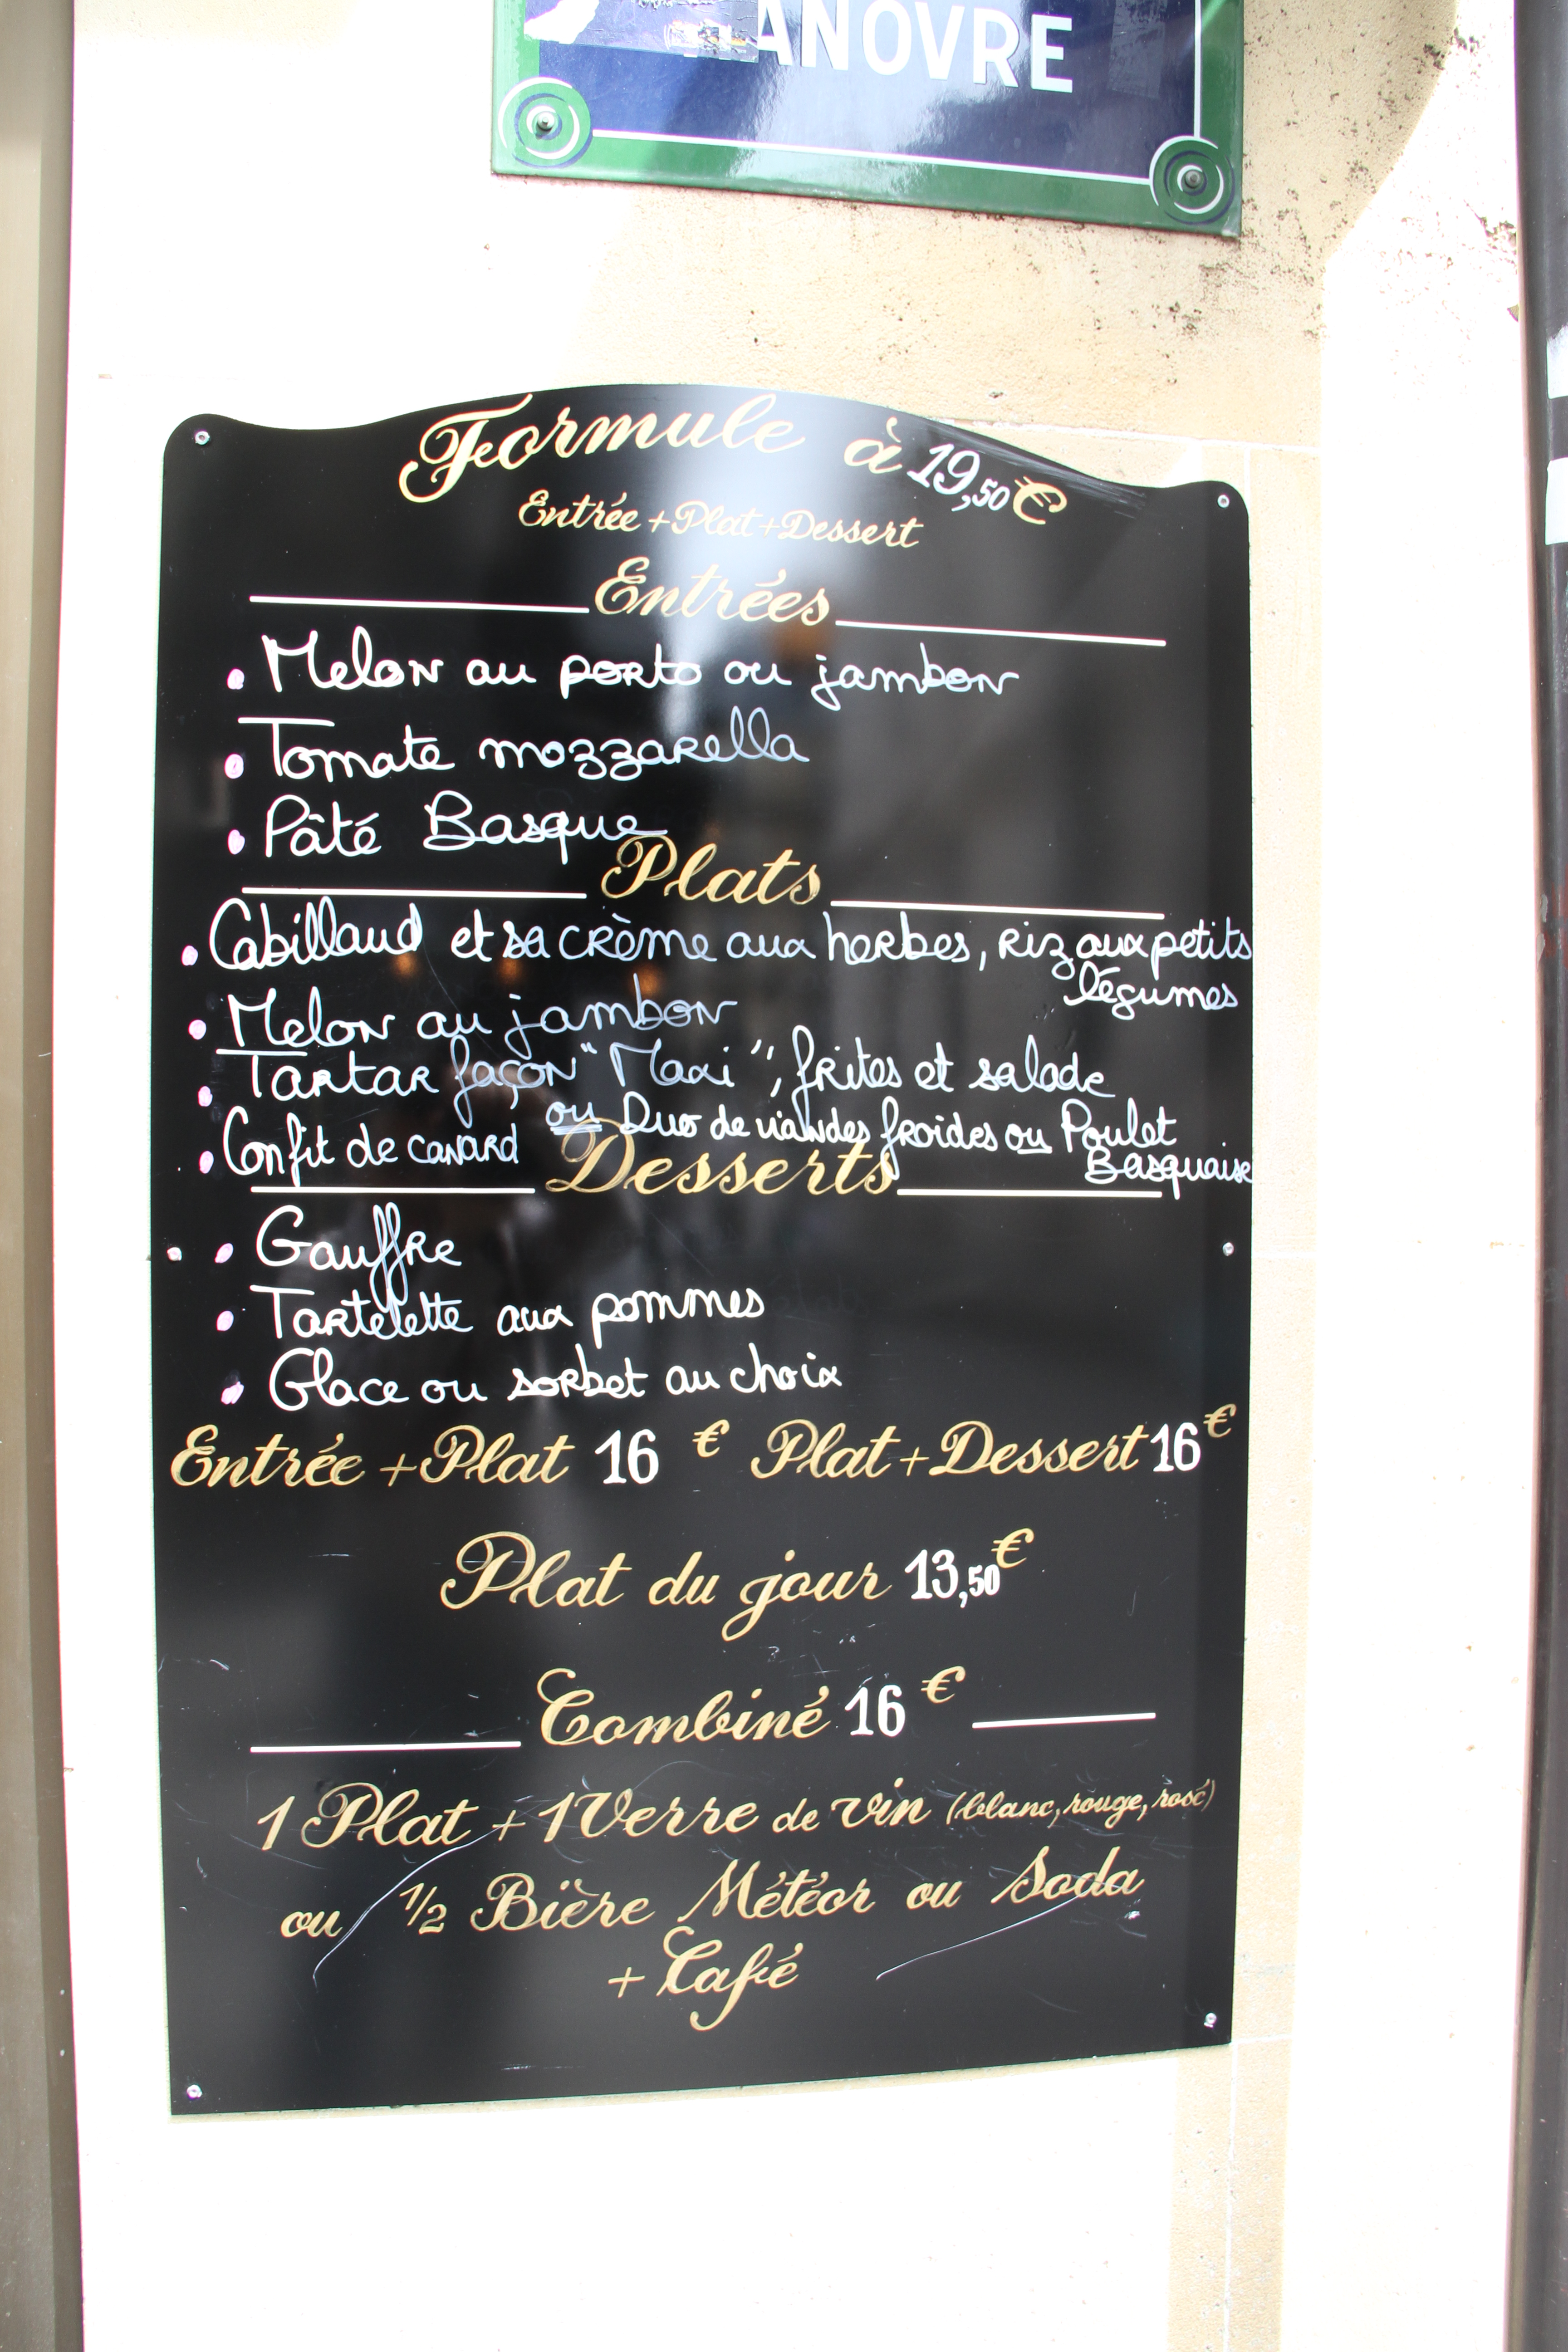 ANOVRE
Formule à 19,50 €
Entrée + Plat + Dessert
Entrées
• Melon au porto ou jambon
• Tomate mozzarella
• Pâté Basque
Plats
• Cabillaud et sa crème aux herbes, riz aux petits
légumes
• Melon au jambon
• Tartar façon "Maxi", frites et salade
• Confit de canard ou Duo de viandes froides ou Poulet
Basquaise
Desserts
• Gauffre
• Tartelette aux pommes
• Glace ou sorbet au choix
Entrée + Plat 16 € Plat + Dessert 16 €
Plat du jour 13,50 €
Combiné 16 €
1 Plat + 1 Verre de vin (blanc, rouge, rosé)
ou 1/2 Bière Météor ou Soda
+ Café